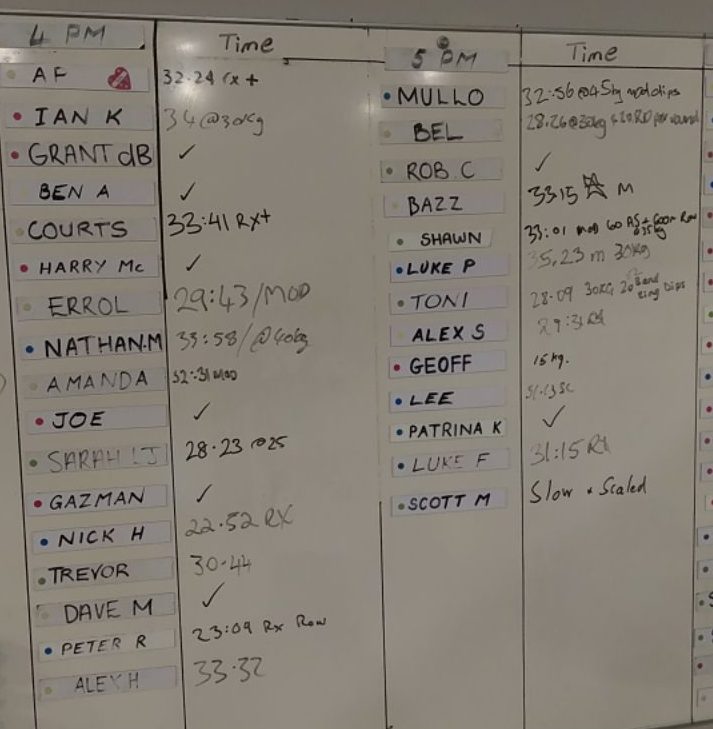 4 PM Time
AF 32.24 rx +
IAN K 34 @ 30kg
GRANT dB ✓
BEN A ✓
COURTS 33:41 RX+
HARRY Mc ✓
ERROL 29:43/MOD
NATHAN.M 33:58/@40kg
AMANDA 32:31 MOD
JOE ✓
SARAH !J 28.23 @25
GAZMAN ✓
NICK H 22.52 RX
TREVOR 30.44
DAVE M ✓
PETER R 23:09 Rx Row
ALEX H 33.32
5 PM Time
MULLO 32:56@45kg mod dips
BEL 28.26@30kg
ROB C ✓
BAZZ 33:15 M
SHAWN 33:01 mod 60 AS + 600m Row
LUKE P 35,23 m 30kg
TONI 28.09 30KG 20 Band ring Dips
ALEX S 29:31 RX
GEOFF 15kg.
LEE
PATRINA K ✓
LUKE F 31:15 RX
SCOTT M Slow + Scaled